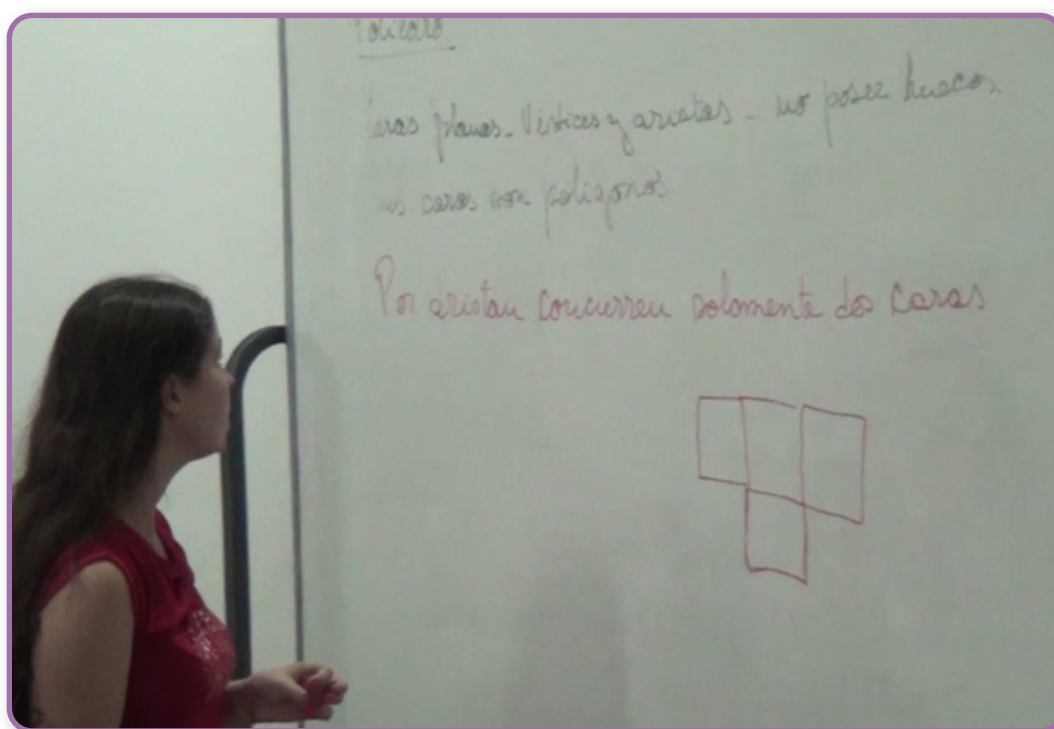 Poliedro
Caras planas - Vértices y aristas - no posee huecos.
caras son polígonos
Por aristan concurren solomente dos Caras